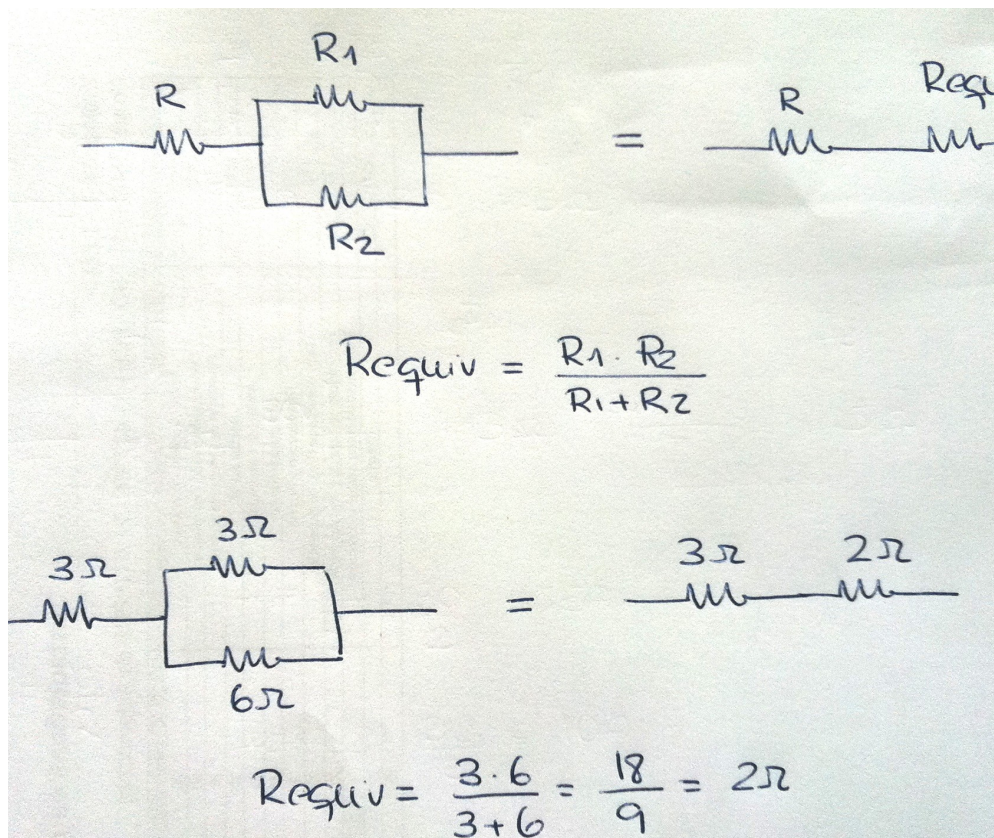 R1
R
R2
=
R
Requ
Requiv = R1 . R2 / R1 + R2
3Ω
3Ω
6Ω
=
3Ω 2Ω
Requiv = 3 · 6 / 3 + 6 = 18 / 9 = 2Ω